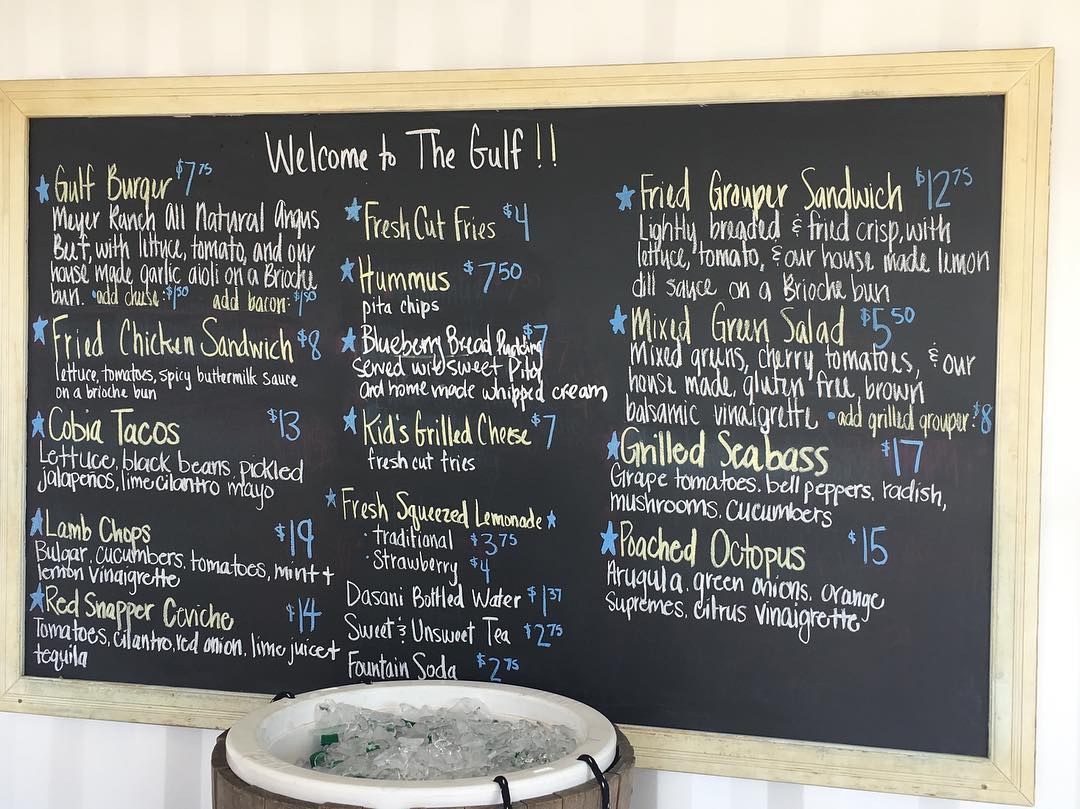 Welcome to The Gulf!!
Gulf Burger $7.75
Meyer Ranch All Natural Angus
Beef, with lettuce, tomato, and our
house made garlic aioli on a Brioche
bun. •add cheese: $1.50 add bacon: $1.50
Fried Chicken Sandwich $8
lettuce, tomatoes, spicy buttermilk sauce
on a brioche bun
Cobia Tacos $13
Lettuce, black beans, pickled
jalapeños, lime cilantro mayo
Lamb Chops $19
Bulgar, cucumbers, tomatoes, mint +
lemon vinaigrette
Red Snapper Ceviche $14
Tomatoes, cilantro, red onion, lime juice +
tequila
Fresh Cut Fries $4
Hummus $7.50
pita chips
Blueberry Bread Pudding $7
served w/ sweet pita
and home made whipped cream
Kid's Grilled Cheese $7
fresh cut fries
Fresh Squeezed Lemonade
• traditional $3.75
• Strawberry $4
Dasani Bottled Water $1.37
Sweet & Unsweet Tea $2.75
Fountain Soda $2.75
Fried Grouper Sandwich $12.75
Lightly breaded & fried crisp, with
lettuce, tomato, & our house made lemon
dill sauce on a Brioche bun
Mixed Green Salad $5.50
Mixed greens, cherry tomatoes, & our
house made, gluten free, brown
balsamic vinaigrette •add grilled grouper: $8
Grilled Seabass $17
Grape tomatoes, bell peppers, radish,
mushrooms, cucumbers
Poached Octopus $15
Arugula, green onions, orange
supremes, citrus vinaigrette